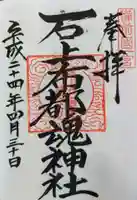 奉拝
石上布都魂神社
平成二十四年四月三十日